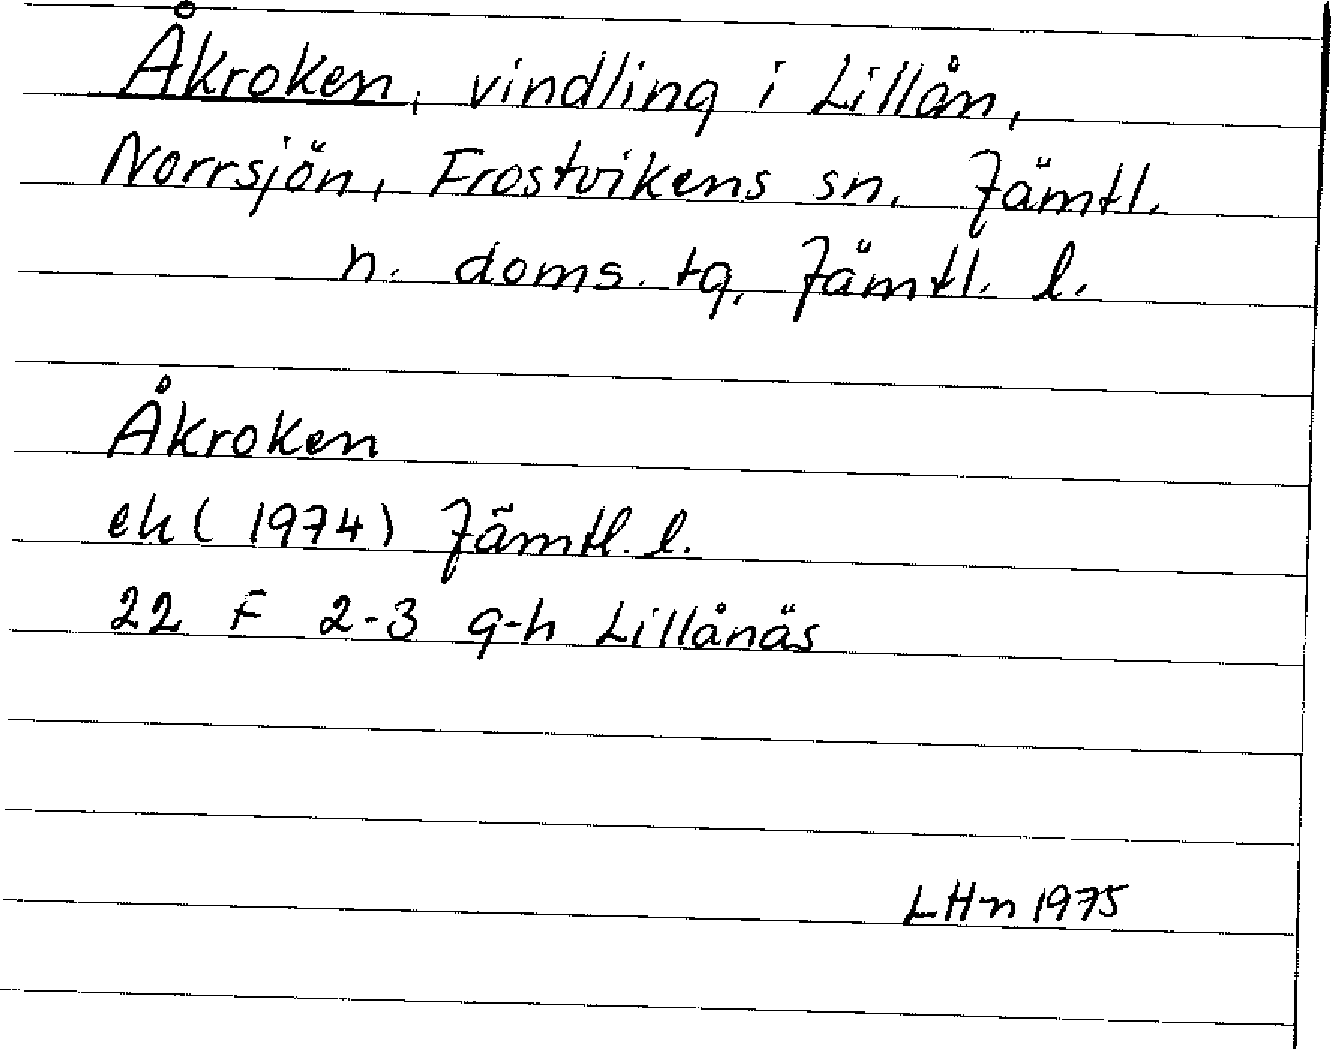 Åkroken, vindling i Lillån,
Norrsjön, Frostvikens sn, Jämtl.
n. doms. tg, Jämtl. l.
Åkroken
ek (1974) Jämtl. l.
22 F 2-3 g-h Lillånäs
LHn 1975